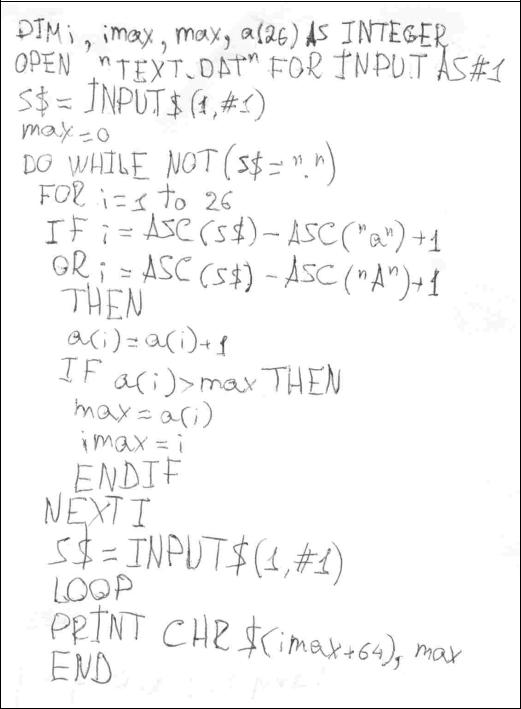 DIM i, imax, max, a(26) AS INTEGER
OPEN "TEXT.DAT" FOR INPUT AS #1
S$ = INPUT$(1,#1)
max=0
DO WHILE NOT(S$ = ".")
FOR i=1 to 26
IF i = ASC(S$) - ASC("a")+1
OR i = ASC(S$) - ASC("A")+1
THEN
a(i)=a(i)+1
IF a(i)>max THEN
max=a(i)
imax=i
ENDIF
NEXT I
S$ = INPUT$(1,#1)
LOOP
PRINT CHR$(imax+64), max
END